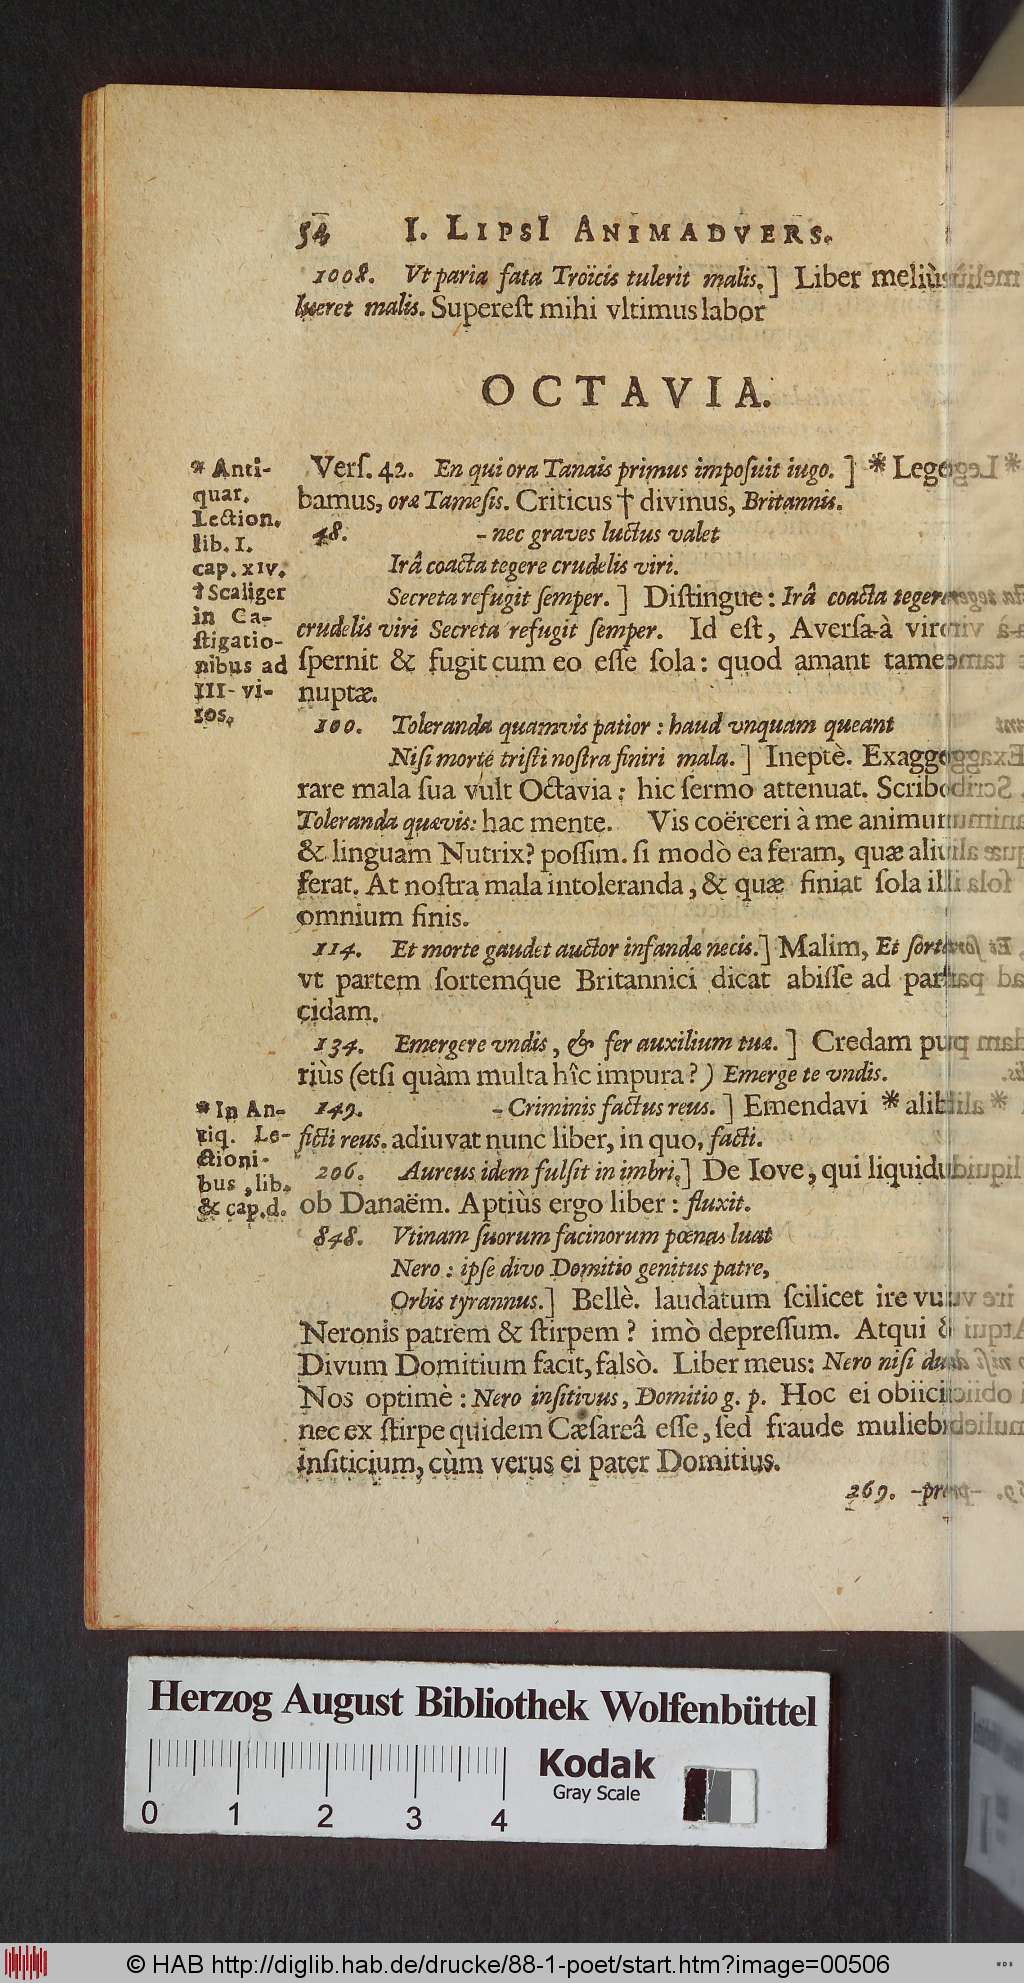 54 I. LIPSI ANIMADVERS.
1008. Vt paria fata Troïcis tulerit malis.] Liber meliùs
lueret malis. Superest mihi vltimus labor
OCTAVIA.
Vers. 42. En qui ora Tanais primus imposuit iugo.] * Lege-
bamus, oræ Tamesis. Criticus † divinus, Britannis.
48. - nec graves luctus valet
Irâ coacta tegere crudelis viri.
Secreta refugit semper.] Distingue: Irâ coacta tegere
crudelis viri Secreta refugit semper. Id est, Aversa à viro
spernit & fugit cum eo esse sola: quod amant tamen
nuptæ.
* Anti-
quar.
Lection.
lib. I.
cap. XIV.
† Scaliger
in Ca-
stigatio-
nibus ad
III-vi-
ros.
100. Toleranda quamvis patior: haud vnquam queant
Nisi morte tristi nostra finiri mala.] Ineptè. Exagge-
rare mala sua vult Octavia: hic sermo attenuat. Scribo
Toleranda quævis: hac mente. Vis coërceri à me animum
& linguam Nutrix? possim. si modò ea feram, quæ alius
ferat. At nostra mala intoleranda, & quæ finiat sola illa
omnium finis.
114. Et morte gaudet auctor infandæ necis.] Malim, Et sorte
vt partem sortemq́ue Britannici dicat abisse ad parri-
cidam.
134. Emergere vndis, & fer auxilium tuæ.] Credam pu-
riùs (etsi quàm multa hîc impura?) Emerge te vndis.
149. - Criminis factus reus.] Emendavi * alibi
ficti reus. adiuvat nunc liber, in quo, facti.
* In An-
tiq. Le-
ctioni-
bus, lib.
& cap. d.
206. Aureus idem fulsit in imbri.] De Iove, qui liquidus
ob Danaëm. Aptiùs ergo liber: fluxit.
848. Vtinam suorum facinorum pœnas luat
Nero: ipse divo Domitio genitus patre,
Orbis tyrannus.] Bellè. laudatum scilicet ire vult
Neronis patrem & stirpem? imò depressum. Atqui &
Divum Domitium facit, falsò. Liber meus: Nero nisi
Nos optimè: Nero insitivus, Domitio g. p. Hoc ei obiicit
nec ex stirpe quidem Cæsareâ esse, sed fraude muliebri
insiticium, cùm verus ei pater Domitius.
269. -pro-
Herzog August Bibliothek Wolfenbüttel
Kodak
Gray Scale
0 1 2 3 4
© HAB http://diglib.hab.de/drucke/88-1-poet/start.htm?image=00506